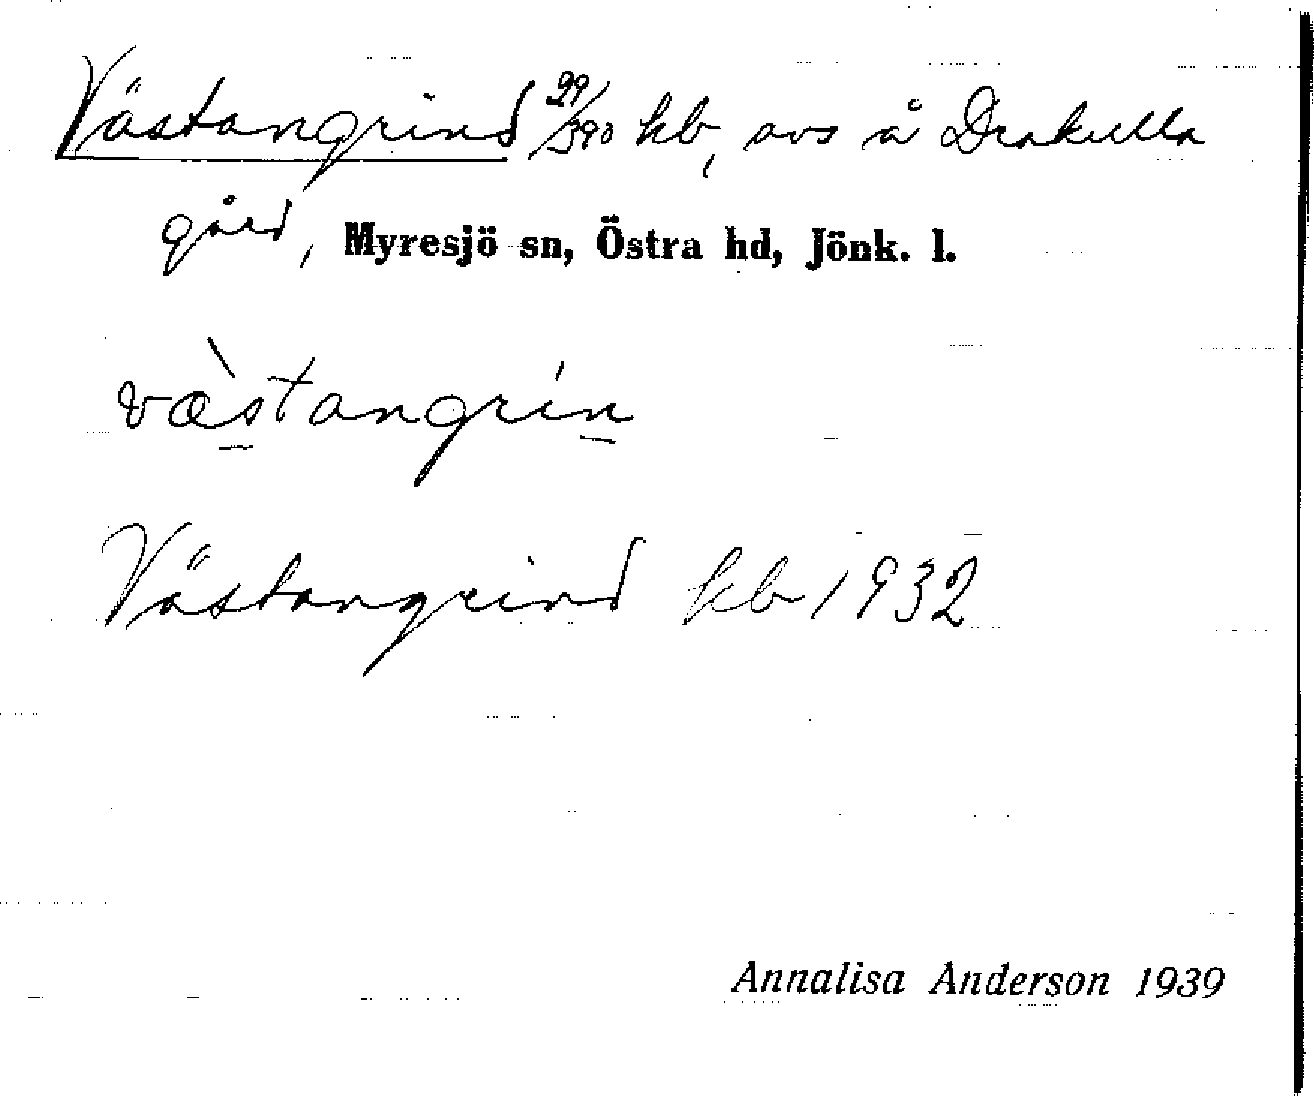 Västangrind 29/390 kb, avs å Drakulla
gård, Myresjö sn, Östra hd, Jönk. l.
væ̀stangrín
Västangrind kb 1932
Annalisa Anderson 1939